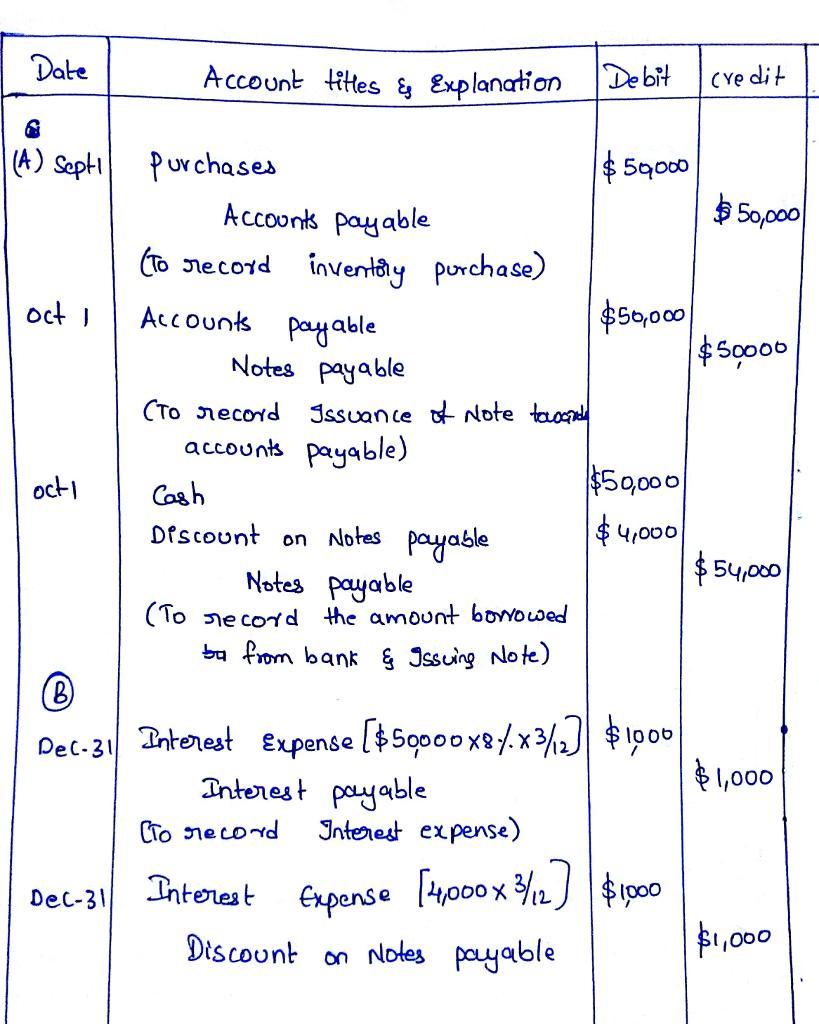 Date Account titles & Explanation Debit credit
(A) Sept 1 Purchases $50,000
Accounts payable $50,000
(To record inventory purchase)
Oct 1 Accounts payable $50,000
Notes payable $50,000
(To record Issuance of Note towards
accounts payable)
Oct 1 Cash $50,000
Discount on Notes payable $4,000
Notes payable $54,000
(To record the amount borrowed
from bank & Issuing Note)
(B)
Dec-31 Interest Expense [$50,000 x 8% x 3/12] $1,000
Interest payable $1,000
(To record Interest expense)
Dec-31 Interest Expense [4,000 x 3/12] $1,000
Discount on Notes payable $1,000